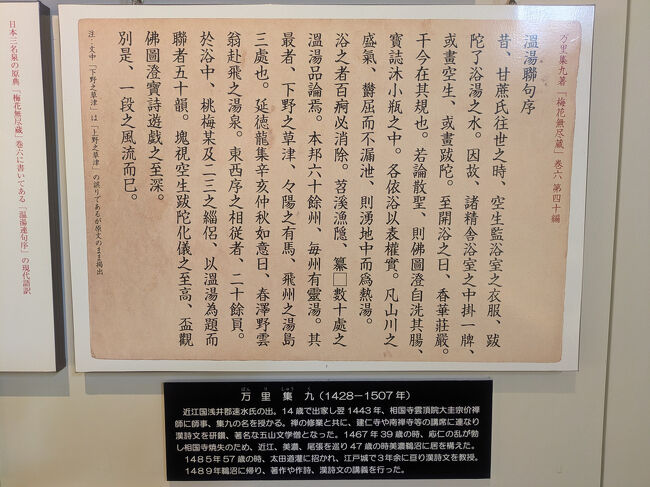 万里集九著「梅花無尽蔵」巻六 第四十編
溫湯聯句序
昔、甘蔗氏往世之時、空生監浴室之衣服、跋
陀了浴湯之水。因故、諸精舎浴室之中掛一牌、
或畫空生、或畫跋陀。至開浴之日、香華莊嚴。
千今在其規也。若論散聖、則佛圖澄自洗其腸、
寶誌沐小瓶之中。各依浴以表權實。凡山川之
盛氣、欝屈而不漏泄、則湧地中而爲熱湯。
浴之者百病必消除。苕溪漁隠、纂□數十處之
溫湯品論焉。本邦六十餘州、毎州有靈湯。其
最者、下野之草津、々陽之有馬、飛州之湯島
三處也。延徳龍集辛亥仲秋如意日、春澤野雲
翁赴飛之湯泉。東西序之相従者、二十餘員。
於浴中、桃梅某及二三之緇侶、以溫湯為題而
聯者五十韻。塊視空生跋陀化儀之至高、盃觀
佛圖澄寶詩遊戯之至深。
別是、一段之風流而已。
注：文中「下野之草津」は「上野之草津」の誤りであるが原文のまま掲出
日本三名泉の原典「梅花無尽蔵」巻六に書いてある「温湯連句序」の現代語訳
ばん り しゅう く
万里集九（1428－1507年）
近江国浅井郡速水氏の出。14歳で出家し翌1443年、相国寺雲頂院大圭宗价禅
師に師事、集九の名を授かる。禅の修業と共に、建仁寺や南禅寺等の講席に連なり
漢詩文を研鑚、著名な五山文学僧となった。1467年39歳の時、応仁の乱が勃
し相国寺焼失のため、近江、美濃、尾張を巡り47歳の時美濃鵜沼に居を構えた。
1485年57歳の時、太田道灌に招かれ、江戸城で3年余に亘り漢詩文を教授。
1489年鵜沼に帰り、著作や作詩、漢詩文の講義を行った。